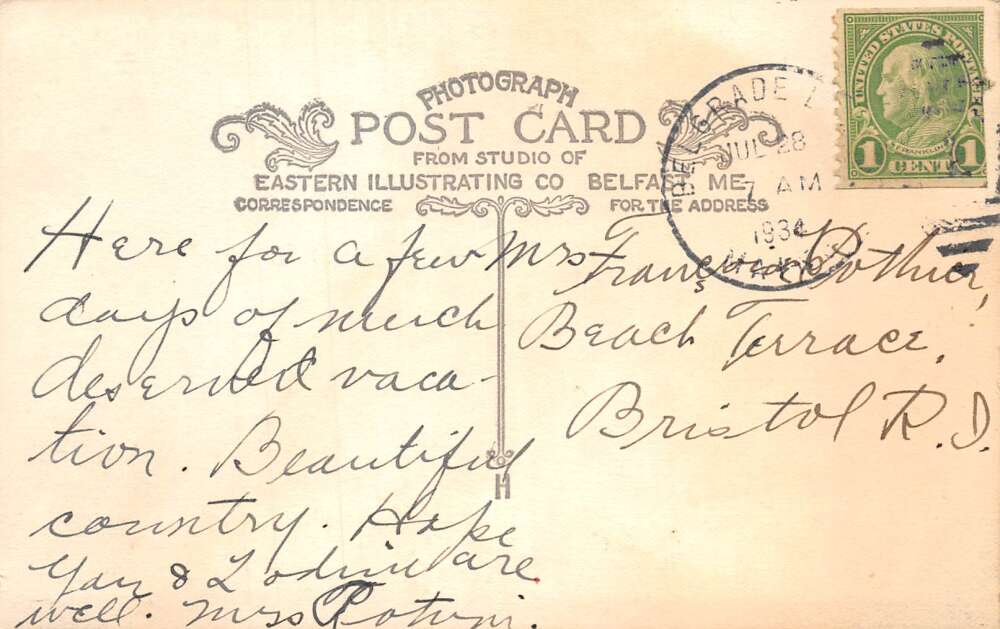 PHOTOGRAPH
POST CARD
FROM STUDIO OF
EASTERN ILLUSTRATING CO BELFAST ME
CORRESPONDENCE
FOR THE ADDRESS
H
UNITED STATES POSTAGE
FRANKLIN
1 CENT 1
BELGRADE L
JUL 28
7 AM
1934
Here for a few
days of much
deserved vaca-
tion. Beautiful
country. Hope
you & are
well. Mrs
Mrs
Beach Terrace,
Bristol R.I.